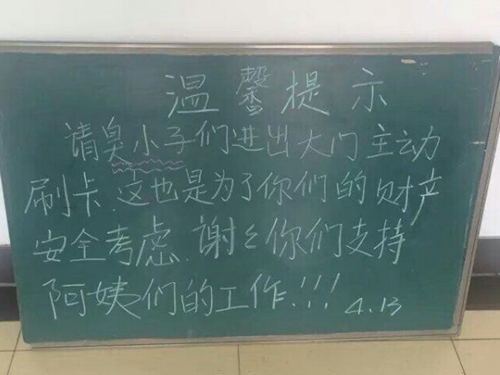 温馨提示
请臭小子们进出大门主动
刷卡.这也是为了你们的财产
安全考虑.谢々你们支持
阿姨们的工作.!!!
4.13